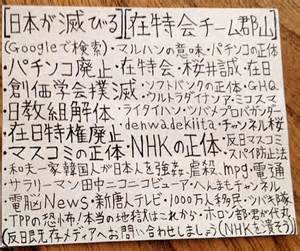 [日本が滅びる][在特会チーム郡山]
(Googleで検索)・マルハンの意味・パチンコの正体
・パチンコ廃止・在特会・桜井誠・在日
・創価学会撲滅・ソフトバンクの正体・GHQ
・日教組解体・ウルトラダイナソア・ミコスマ
・ライタイハン・ツバメプロパガンダー
・在日特権廃止・denwadekiita・チャンネル桜
・マスコミの正体・NHKの正体・反日マスゴミ・スパイ防止法
・和夫一家韓国人が日本人を強姦、虐殺.mpg・電通
サラリーマン田中ニコニコピュア・へんまもチャンネル
・電脳News・新唐人テレビ・1000万人移民・ツバキ隊
・TPPの恐怖!本当の地獄はこれから・ホロン部・君が代丸
(反日既存メディアへお問い合わせしましょう)(NHKを潰そう)